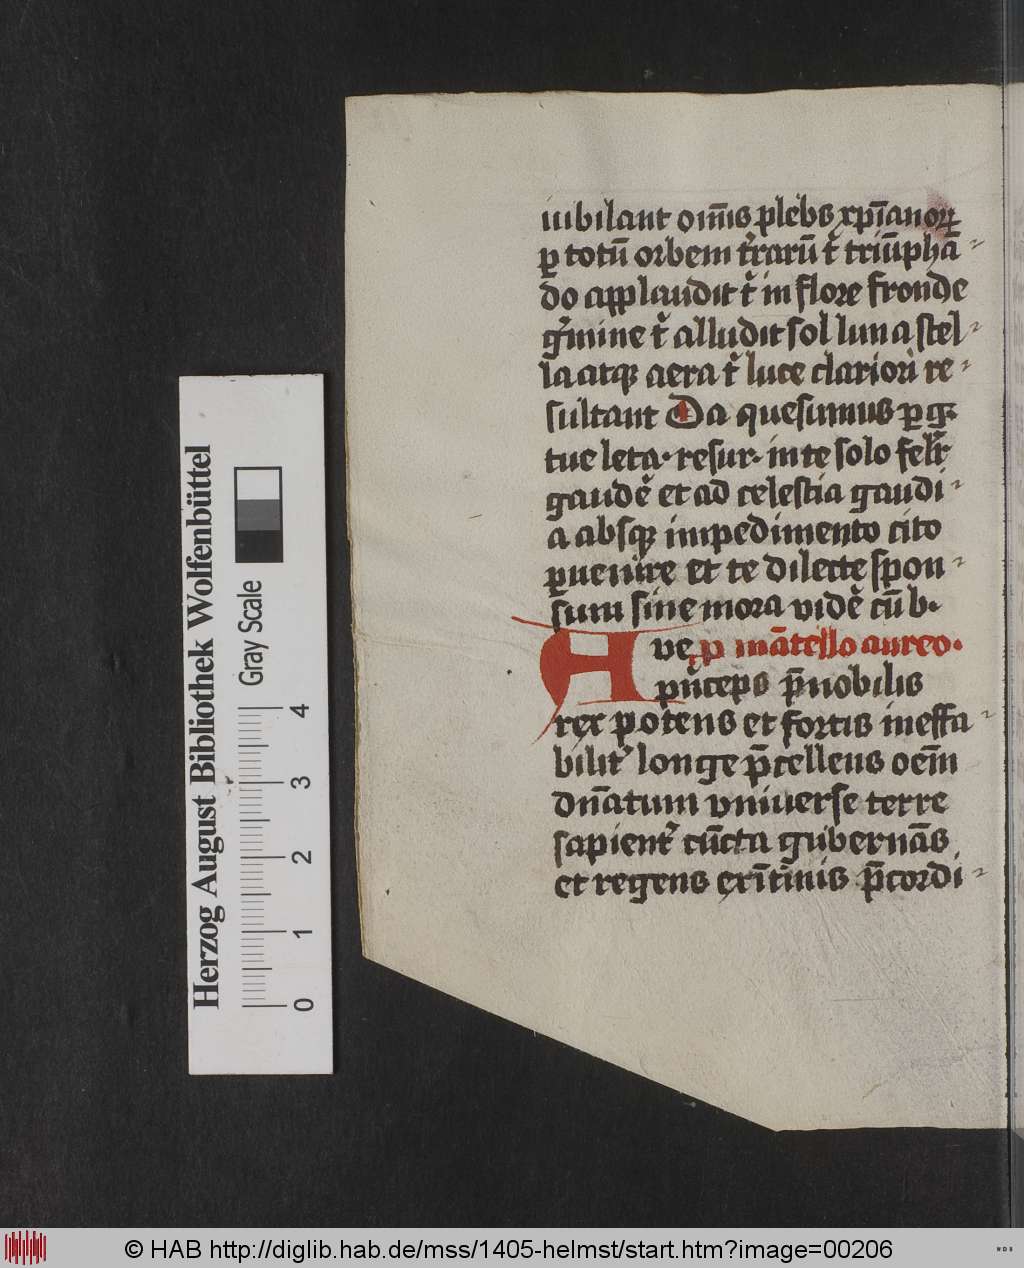 iubilant om̄is plebs xp̄ianoꝝ
ꝑ totū orbem t̓rarū ⁊ triūphā-
do applaudit ⁊ in flore fronde
g̓mine ⁊ alludit sol luna stel-
la atqꝫ aera ⁊ luce clariori re-
sultant Da quesumus ꝑ g̃
tue leta· resur· in te solo felr̄
gaudē et ad celestia gaudi-
a absqꝫ impedimento cito
ꝑuenire et te dilecte spon-
sum sine mora vidē cū b·
Ave ꝑ mātello aureo·
prīceps p̄nobilis
rex potens et fortis ineffa-
bilit̓ longe p̄cellens oēm
dn̄atum vniuerse terre
sapient̓ cūcta gubernās
et regens exīt̓mis p̄cordi-
Herzog August Bibliothek Wolfenbüttel
Gray Scale
0 1 2 3 4
© HAB http://diglib.hab.de/mss/1405-helmst/start.htm?image=00206